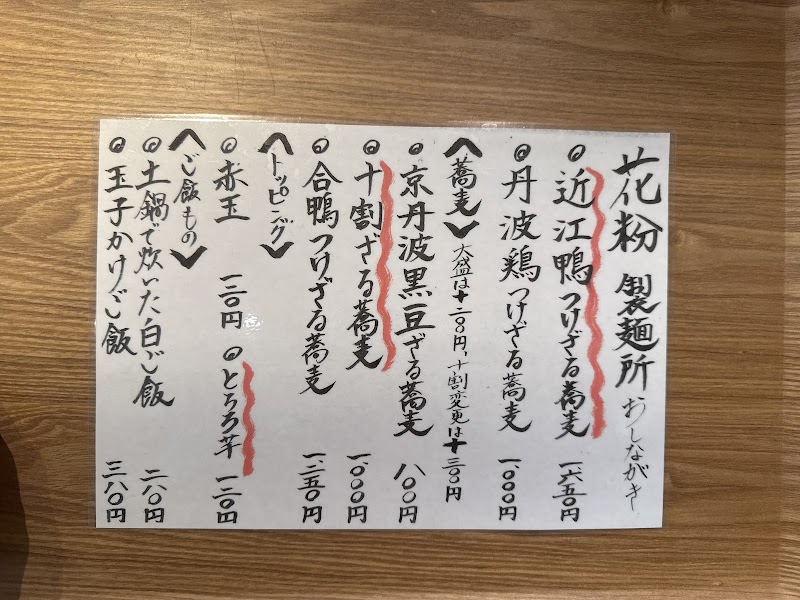 花粉 製麺所 おしながき
◎近江鴨つけざる蕎麦 一、六五〇円
◎丹波鶏つけざる蕎麦 一、〇〇〇円
〈蕎麦〉大盛は十二〇〇円、十割変更は十三〇〇円
◎京丹波黒豆ざる蕎麦 八〇〇円
◎十割ざる蕎麦 一、〇〇〇円
◎合鴨つけざる蕎麦 一、二五〇円
〈トッピング〉
◎赤玉 一二〇円 ◎とろろ芋 一二〇円
〈ご飯もの〉
◎土鍋で炊いた白ご飯 二八〇円
◎玉子かけご飯 三八〇円